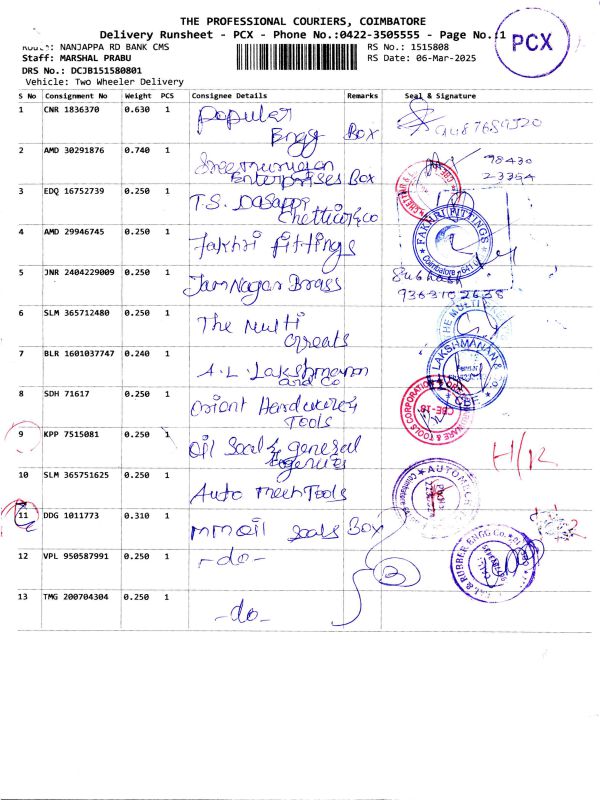 THE PROFESSIONAL COURIERS, COIMBATORE
Delivery Runsheet - PCX - Phone No.:0422-3505555 - Page No.:1
PCX
Route: NANJAPPA RD BANK CMS RS No.: 1515808
Staff: MARSHAL PRABU RS Date: 06-Mar-2025
DRS No.: DCJB151580801
Vehicle: Two Wheeler Delivery
S No Consignment No Weight PCS Consignee Details Remarks Seal & Signature
1 CNR 1836370 0.630 1 Populer
Engg Box
2 AMD 30291876 0.740 1 Sree murugan 98430
Enterprises Box 23354
3 EDQ 16752739 0.250 1 T.S. Dasappa
Chettiar & co
4 AMD 29946745 0.250 1 Fakhri fittings FAKHRI FITTINGS
Coimbatore
5 JNR 2404229009 0.250 1 Jam Nagar Brass Subhash
9363102638
6 SLM 365712480 0.250 1 The Multi THE MULTI
7 BLR 1601037747 0.240 1 A.L. Lakshmanan LAKSHMANAN & CO.
and co CBE.
8 SDH 71617 0.250 1 Orient Hardware & TOOLS CORPORATION
Tools CBE-18
9 KPP 7515081 0.250 1 Oil Seal & general
Agencies
10 SLM 365751625 0.250 1 Auto mech Tools AUTOMECH
Coimbatore
11 DDG 1011773 0.310 1 mm oil seals Box
12 VPL 950587991 0.250 1 -do- RUBBER ENGG Co.
2
13 TMG 200704304 0.250 1 -do-